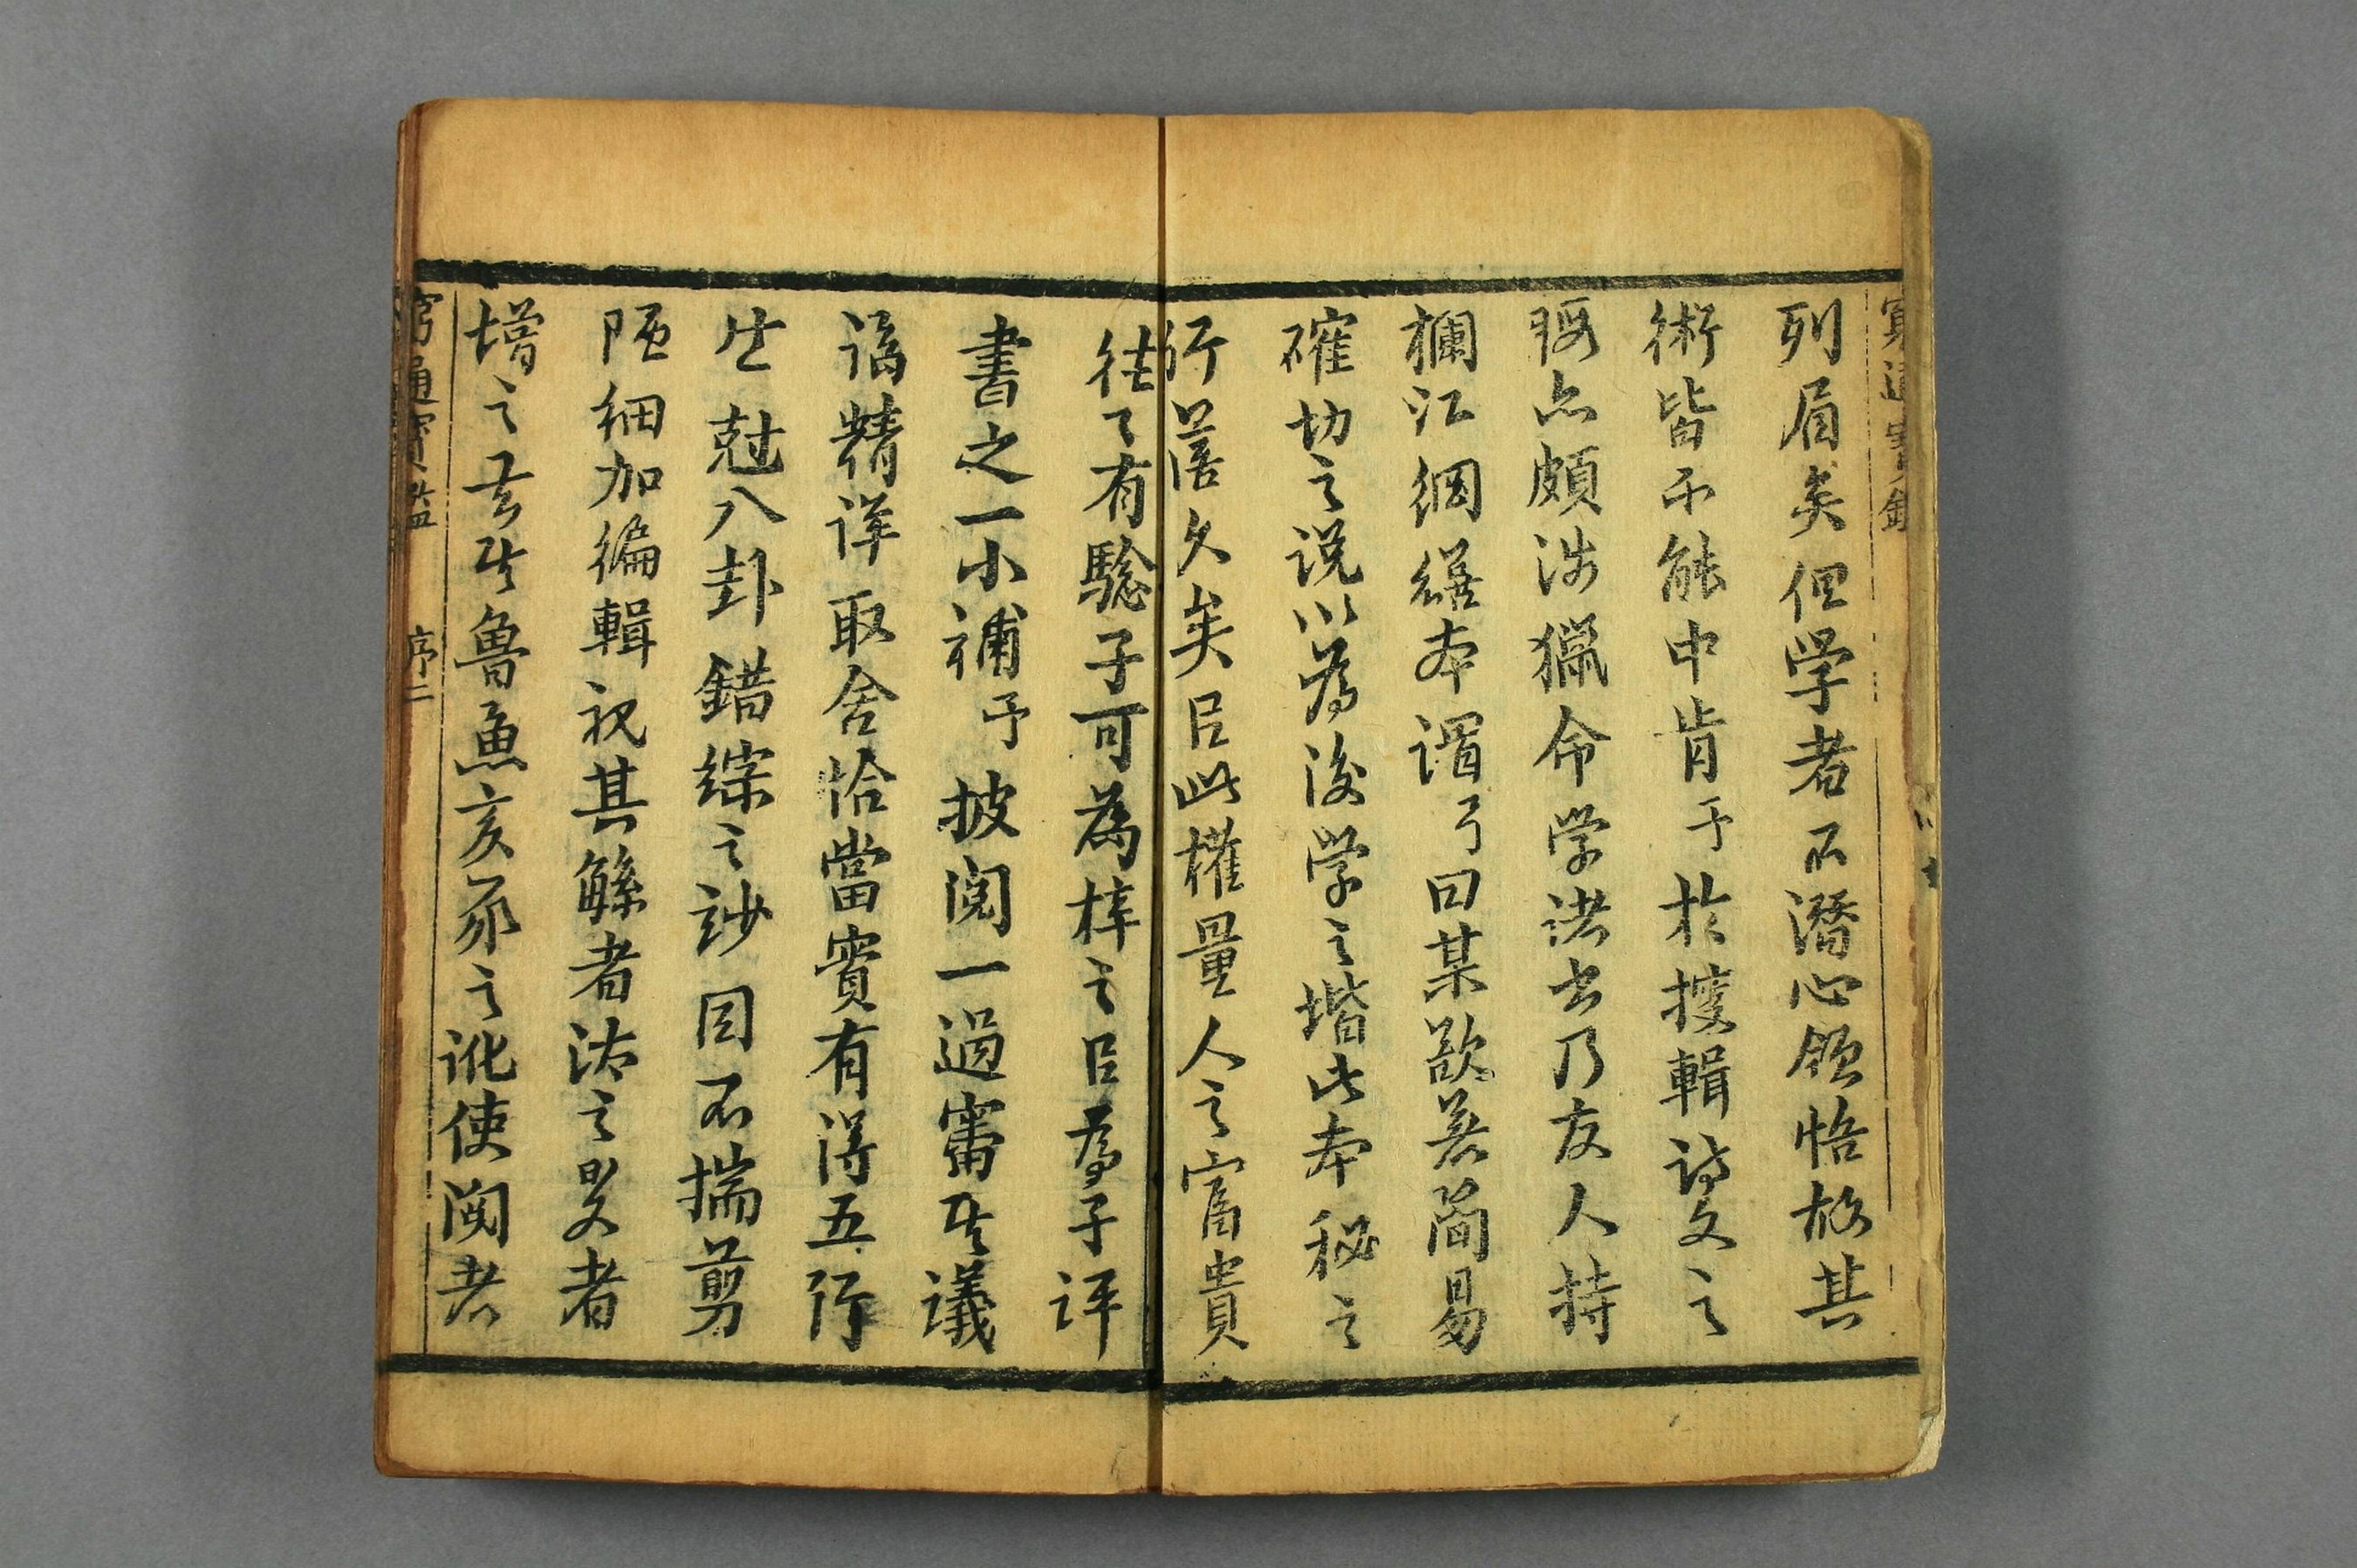 列眉矣但学者不潛心領悟故其
術皆不能中肯予於搜輯詩文之
暇亦頗涉獵命学諸书乃友人持
欄江網繕本謂予曰某欲為簡易
確切之説以為後学之堦此本秘之
行篋久矣以此權量人之富貴
往々有驗子可為梓之以為子評
書之一小補予披閱一過審其議
論精詳取舍恰當實有得五行
生尅八卦錯綜之妙因不揣剪
陋細加編輯視其繇者法之畧者
增之去其魯魚亥豕之訛使閱者
窮通寶鑑 序 二